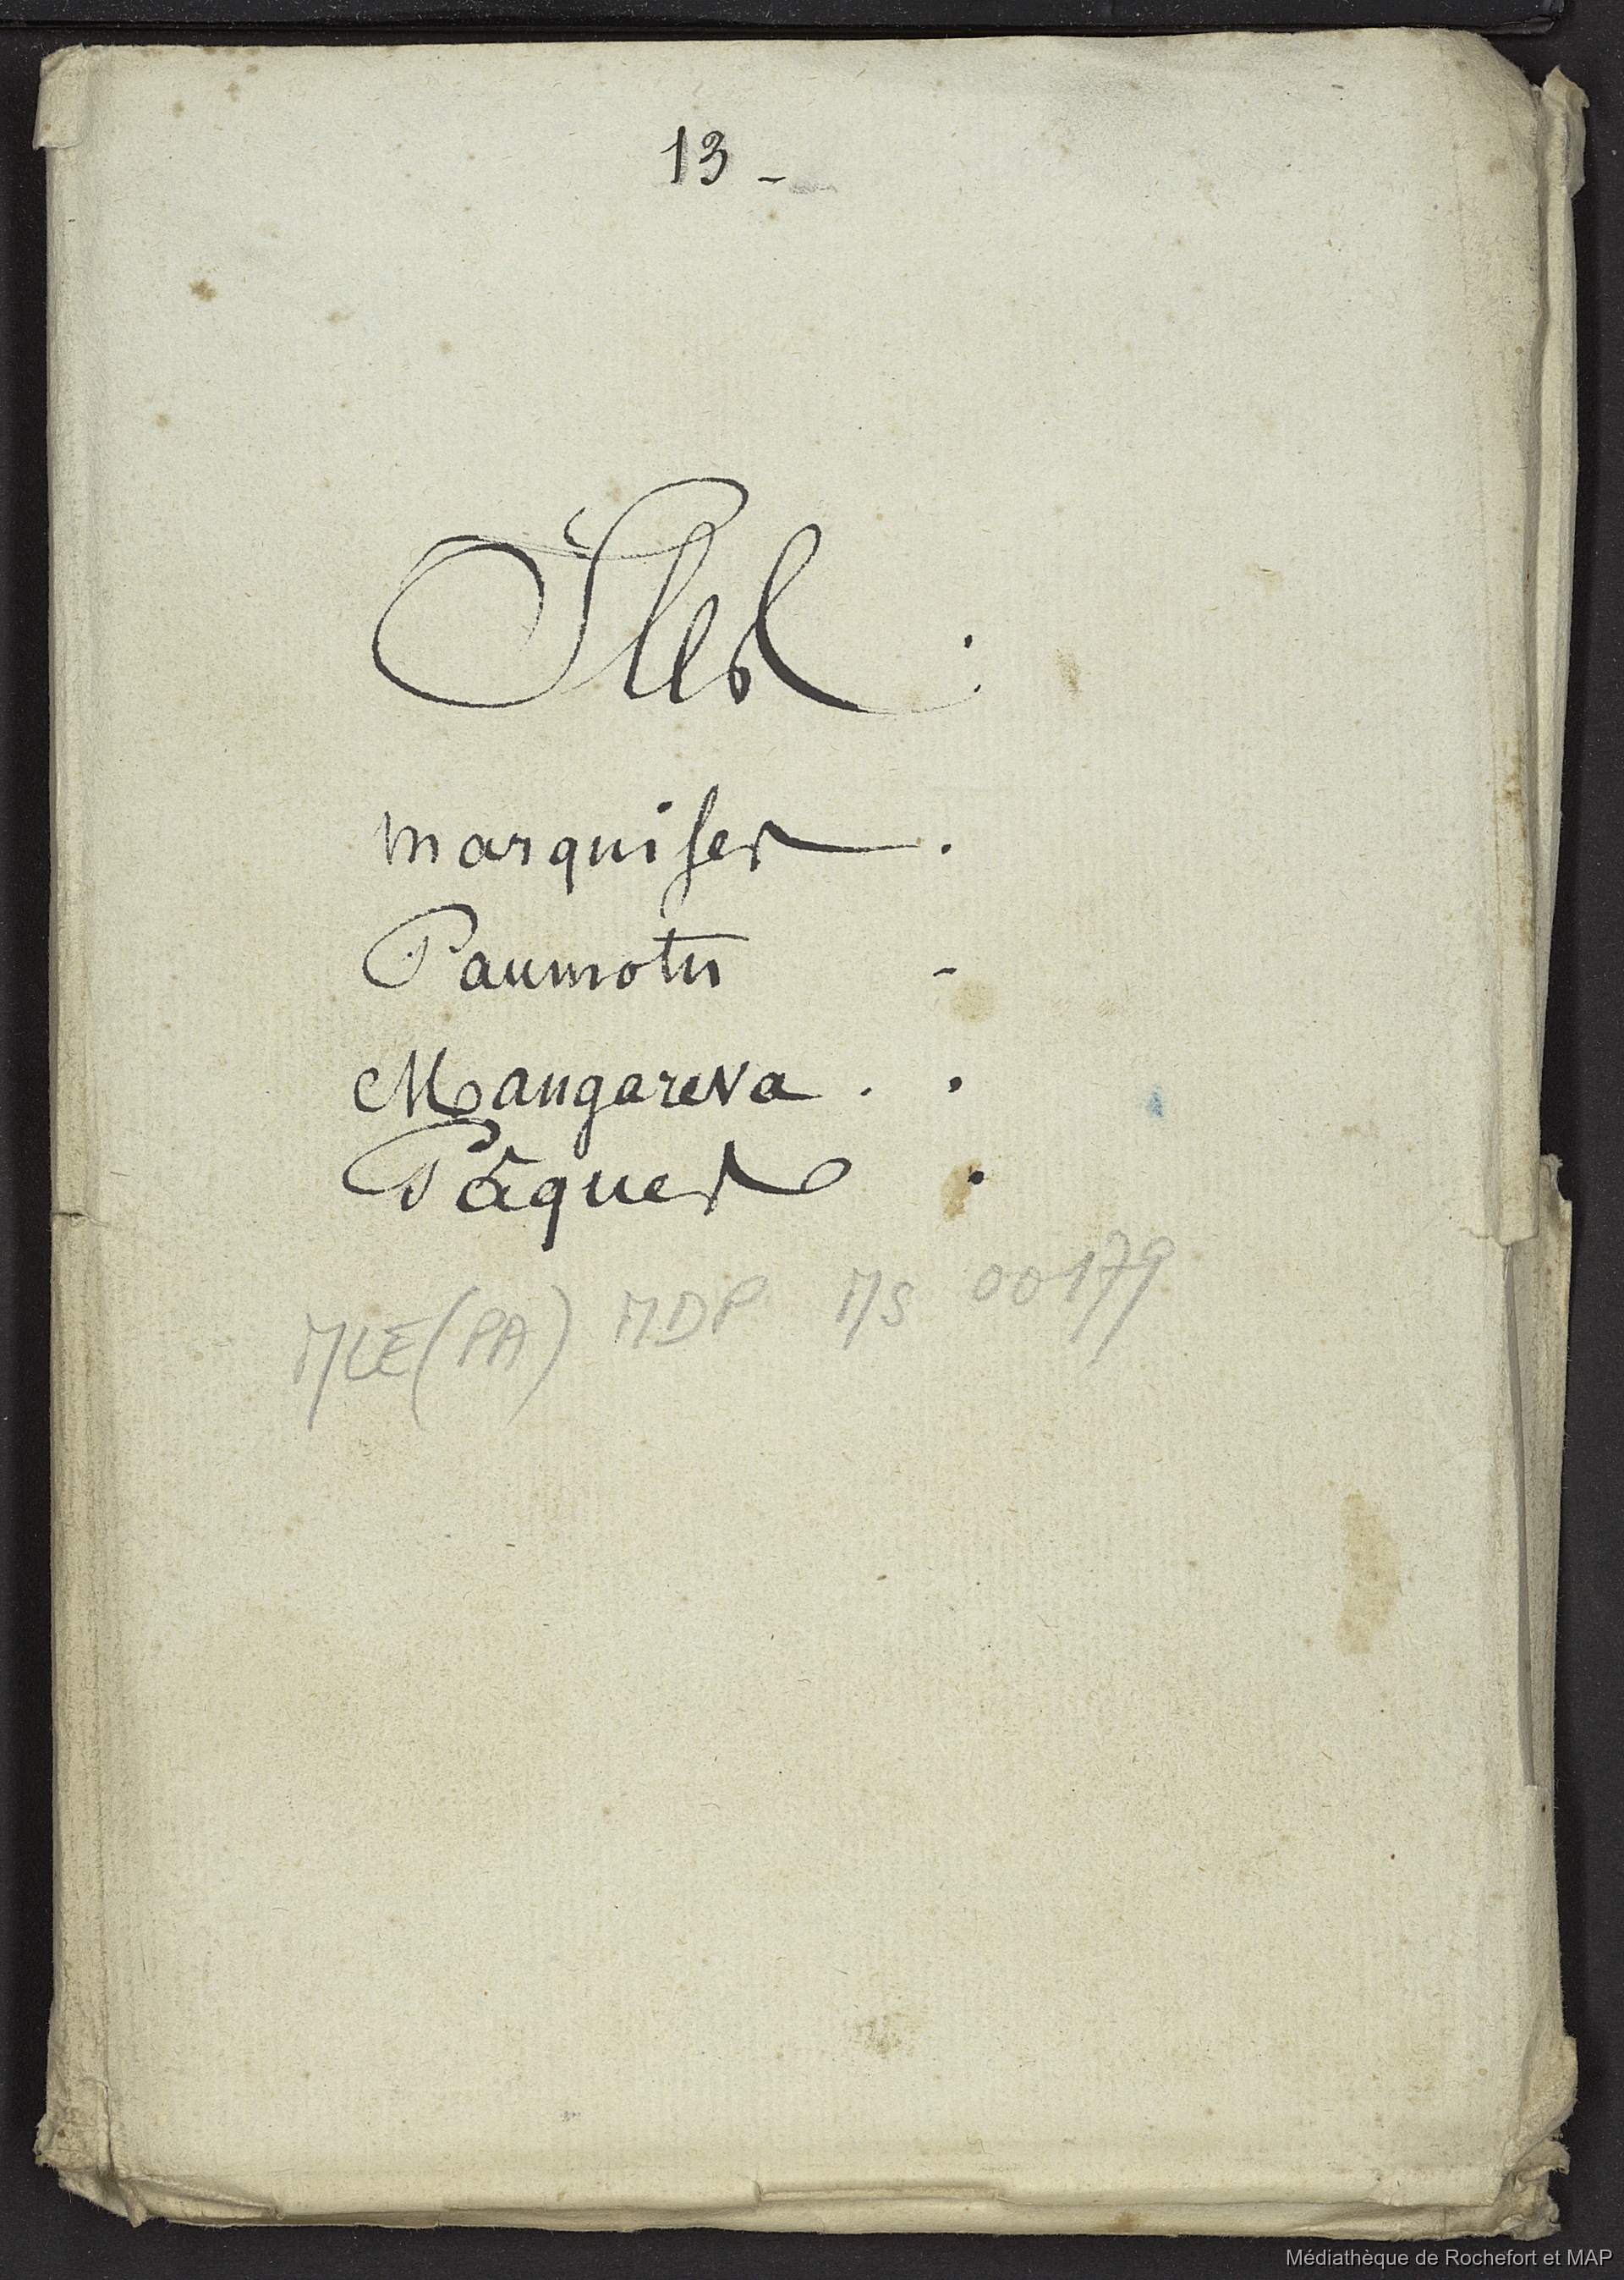 13 -
Iles :
marquises .
Paumotu -
Mangareva . .
Pâques .
MLE(PA) MDP MS 00179
Médiathèque de Rochefort et MAP